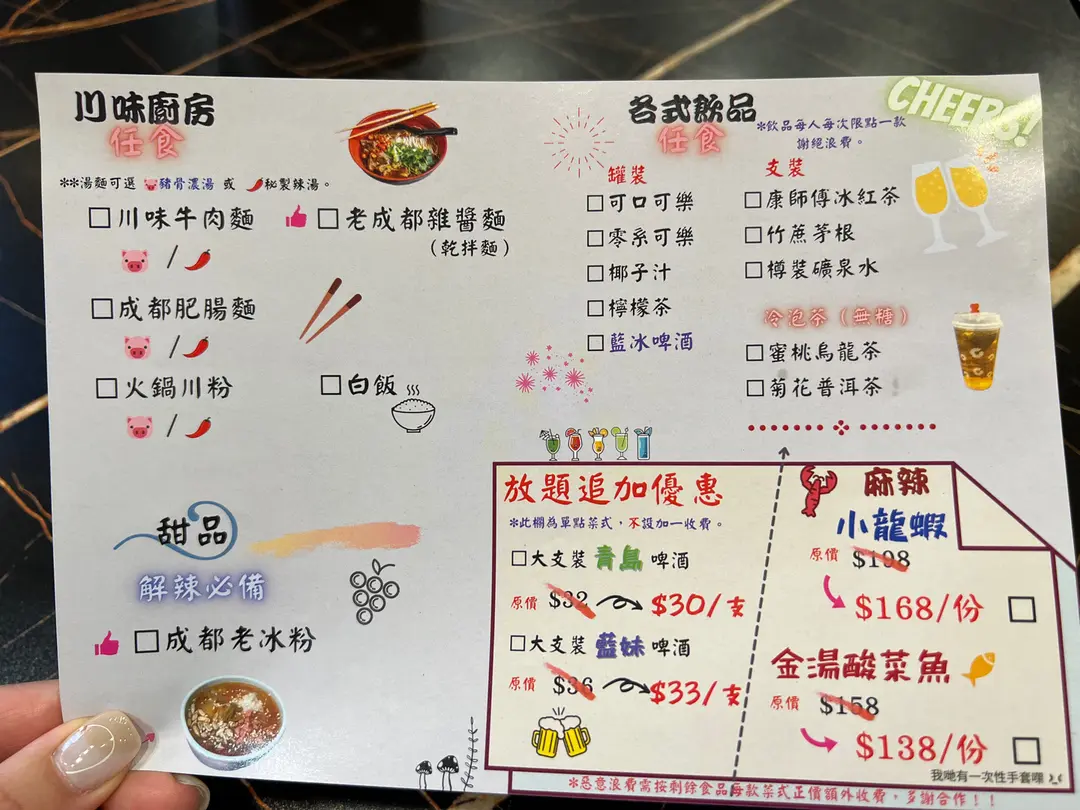 川味廚房
任食
**湯麵可選 豬骨濃湯 或 秘製辣湯。
川味牛肉麵
/
老成都雜醬麵
(乾拌麵)
成都肥腸麵
/
火鍋川粉
/
白飯
甜品
解辣必備
成都老冰粉
各式飲品
任食
*飲品每人每次限點一款
謝絕浪費。
CHEERS!
罐裝
可口可樂
零系可樂
椰子汁
檸檬茶
藍冰啤酒
支裝
康師傅冰紅茶
竹蔗茅根
樽裝礦泉水
冷泡茶(無糖)
蜜桃烏龍茶
菊花普洱茶
放題追加優惠
*此欄為單點菜式,不設加一收費。
大支裝 青島 啤酒
原價 $32 $30/支
大支裝 藍妹 啤酒
原價 $36 $33/支
麻辣
小龍蝦
原價 $198
$168/份
金湯酸菜魚
原價 $158
$138/份
我哋有一次性手套㗎
*惡意浪費需按剩餘食品每款菜式正價額外收費,多謝合作!!